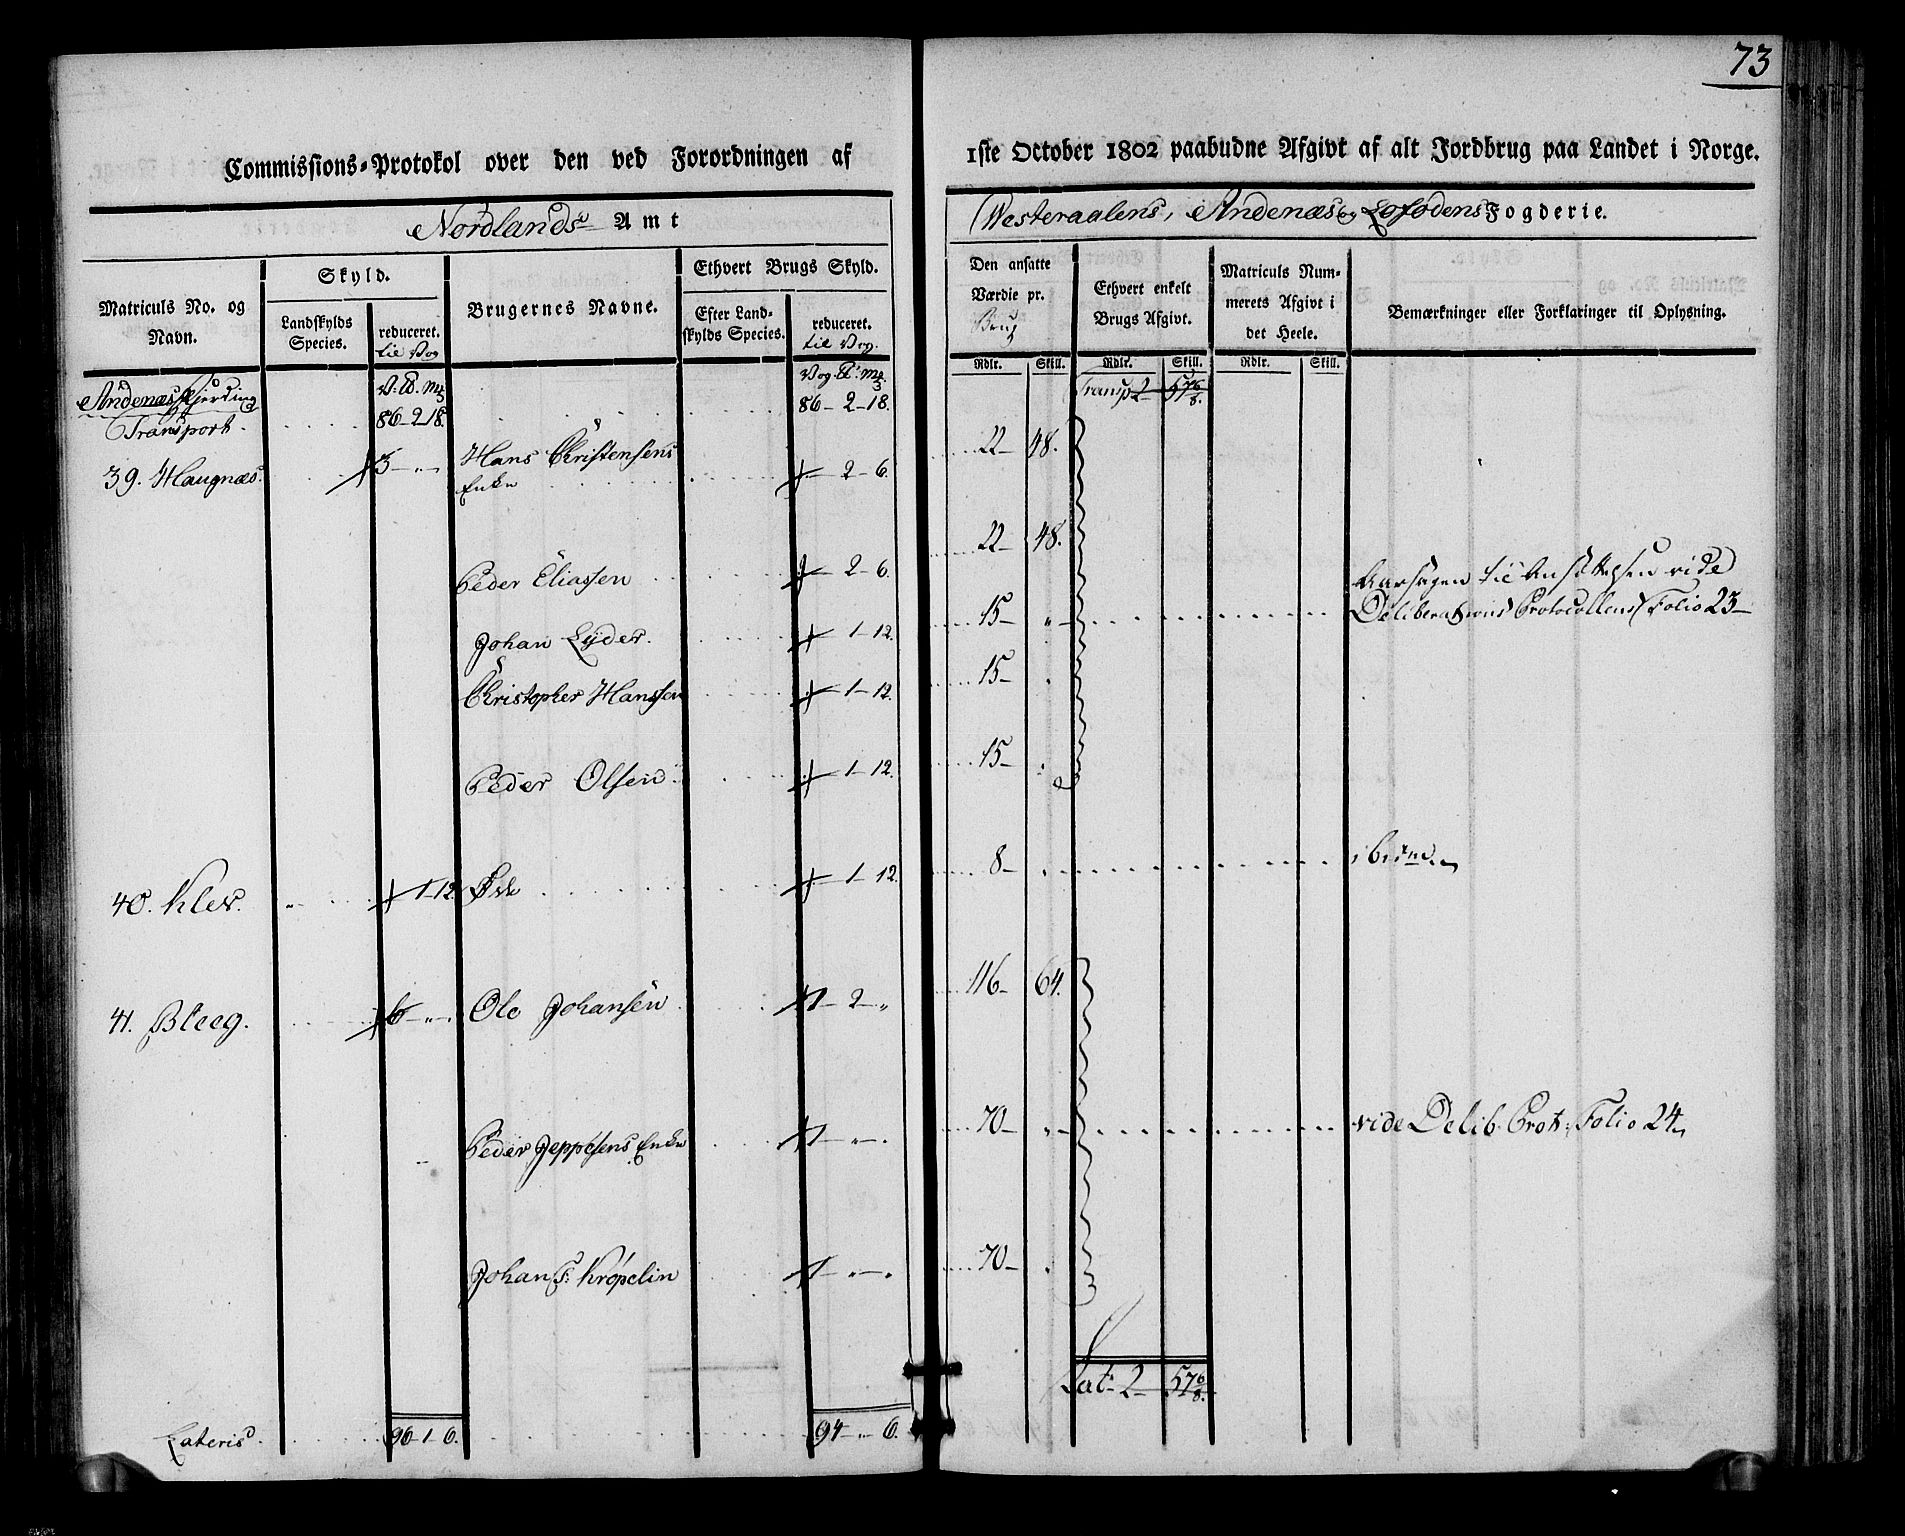 73
Commissions-Protokol over den ved Forordningen af 1ste October 1802 paabudne Afgivt af alt Jordbrug paa Landet i Norge.
Nordlands Amt
Westeraalens, Andenæs og Lofodens Fogderie.
Matriculs No. og Navn.
Skyld.
Landskylds Species.
reduceret. til Vog
Brugernes Navne.
Ethvert Brugs Skyld.
Efter Landskylds Species.
reduceret. til Vog.
Den ansatte Værdie pr. Brug
Ethvert enkelt Brugs Afgivt.
Matriculs Nummerets Afgivt i det Heele.
Bemærkninger eller Forklaringer til Oplysning.
Rdlr. Skill. Rdlr. Skill. Rdlr. Skill.
Andenæs Fjerding
Transport. 86-2-18. 86-2-18. Transp. 2 57 6/8.
39. Haugnæs. 3 - " - Hans Christensens Enke 2-6. 22 - 48.
Peder Eliassen 2-6. 22 - 48.
Aarsagen til Ansættelsen vide
Johan Lyder. 1-12. 15 - " - Deliberations Protocollens Folio 23 -
Christopher Hanssen 1-12. 15 -
Peder Olsen 1-12. 15 -
40. Klev. 1-12. Øde 1-12. 8 - ibidem
41. Bleeg. 6 - " - Ole Johansen 1-2-" 116 - 64.
Peder Jeppesens Enke 1 - " - 70 - " vide Delib. Prot: Folio 24
Johan Kröpelin 1 - " - 70 -
Lat. 2 - 57 6/8.
Lateris. 96-1-6. 94-"-6.